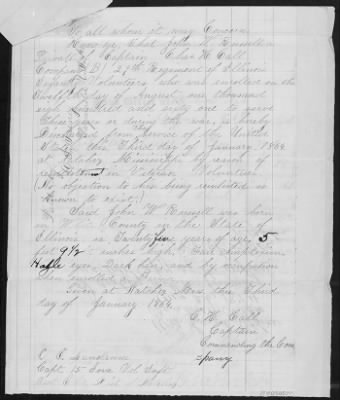 To all whom it may Concern
Know ye That John W Russell a
Private of Captain Chas H Call
Company B, 29th Regiment of Illinois
Volunteers who was enrolled on the
day of August one thousand
eight hundred and sixty one to serve
Three years or during the war, is hereby
Discharged from the Service of the United
States this Third day of January, 1864
at Natchez Mississippi by reason of
in Veteran Volunteers.
(No objection to his being reenlisted is
known to exist.)
Said John W Russell was born
in White County in the State of
Illinois is Twenty five years of age, 5
feet 9½ inches high, Fair Complexion
eyes, Dark hair, and by occupation
when enrolled a
Given at Natchez Miss this Third
day of January 1864.
C. H. Call
Captain
Commanding the Com
pany
Capt 15 Iowa Vol Inft